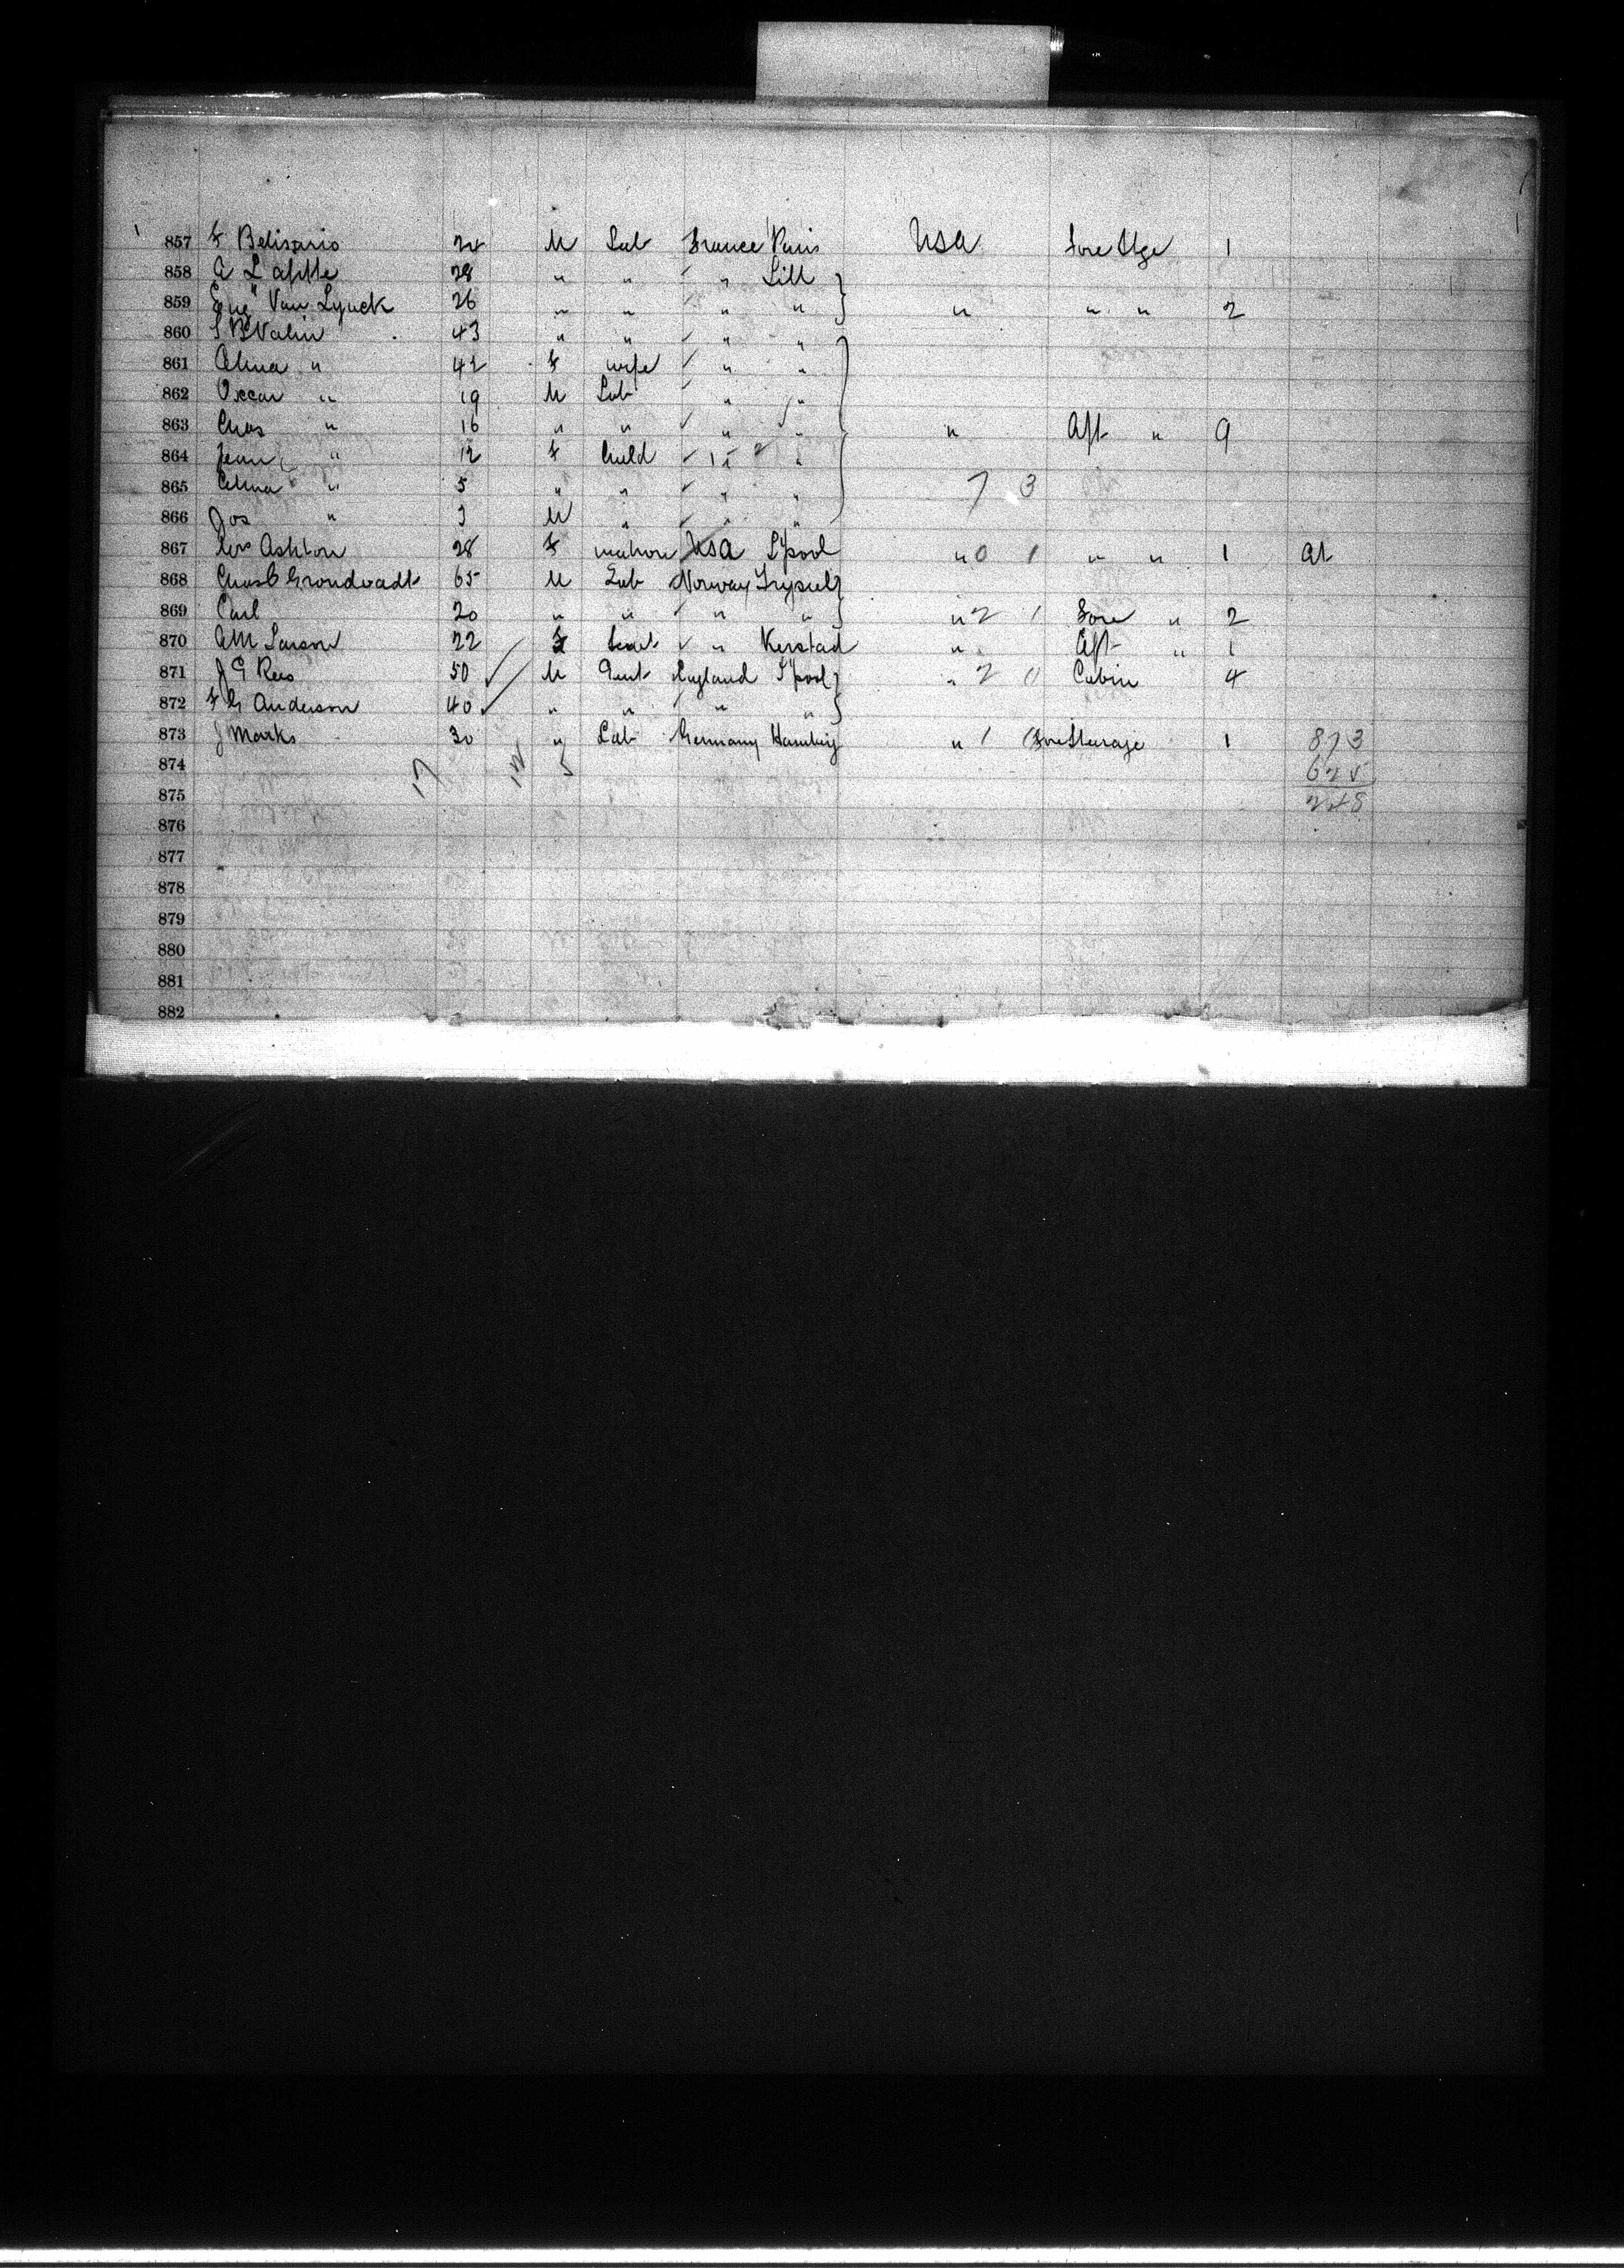 857 F Belisario 24 M Lab France Paris USA Fore Stge 1
858 A Lafitte 28 " " " Lill
859 Eug Van Lynck 26 " " " " " " " 2
860 43 " " " "
861 Alma " 42 F wife " "
862 Oscar " 19 M Lab " "
863 Chas " 16 " " " " " Aft " 9
864 Jean " 12 F Child "
865 " 5 " " " " 7 3
866 Jos " 3 M " " "
867 Mrs Ashton 28 F matron USA L'pool " 0 1 " " 1 At
868 Chas 65 M Lab Norway Trysil
869 Carl 20 " " " " " 2 1 Fore " 2
870 AM Larson 22 F " " Aft " 1
871 J G Rees 50 M Gent England L'pool " 2 0 Cabin 4
872 F G Anderson 40 " " " "
873 J Marks 30 " Lab Germany Hamburg " 1 Fore Steerage 1 873
874 17 12 5 625
875 248
876
877
878
879
880
881
882